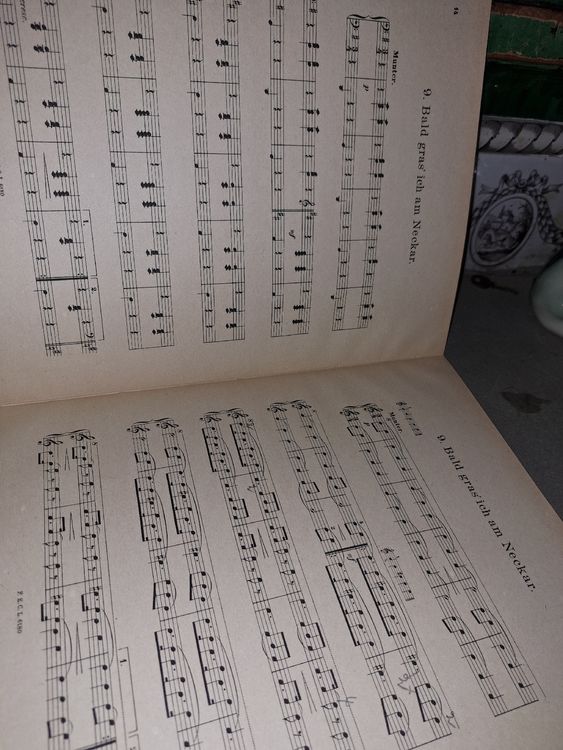 44
9. Bald gras' ich am Neckar.
Munter.
p
mf
1.
2.
9. Bald gras' ich am Neckar.
Munter.
p
1.
2.
F. E. C. L. 6180